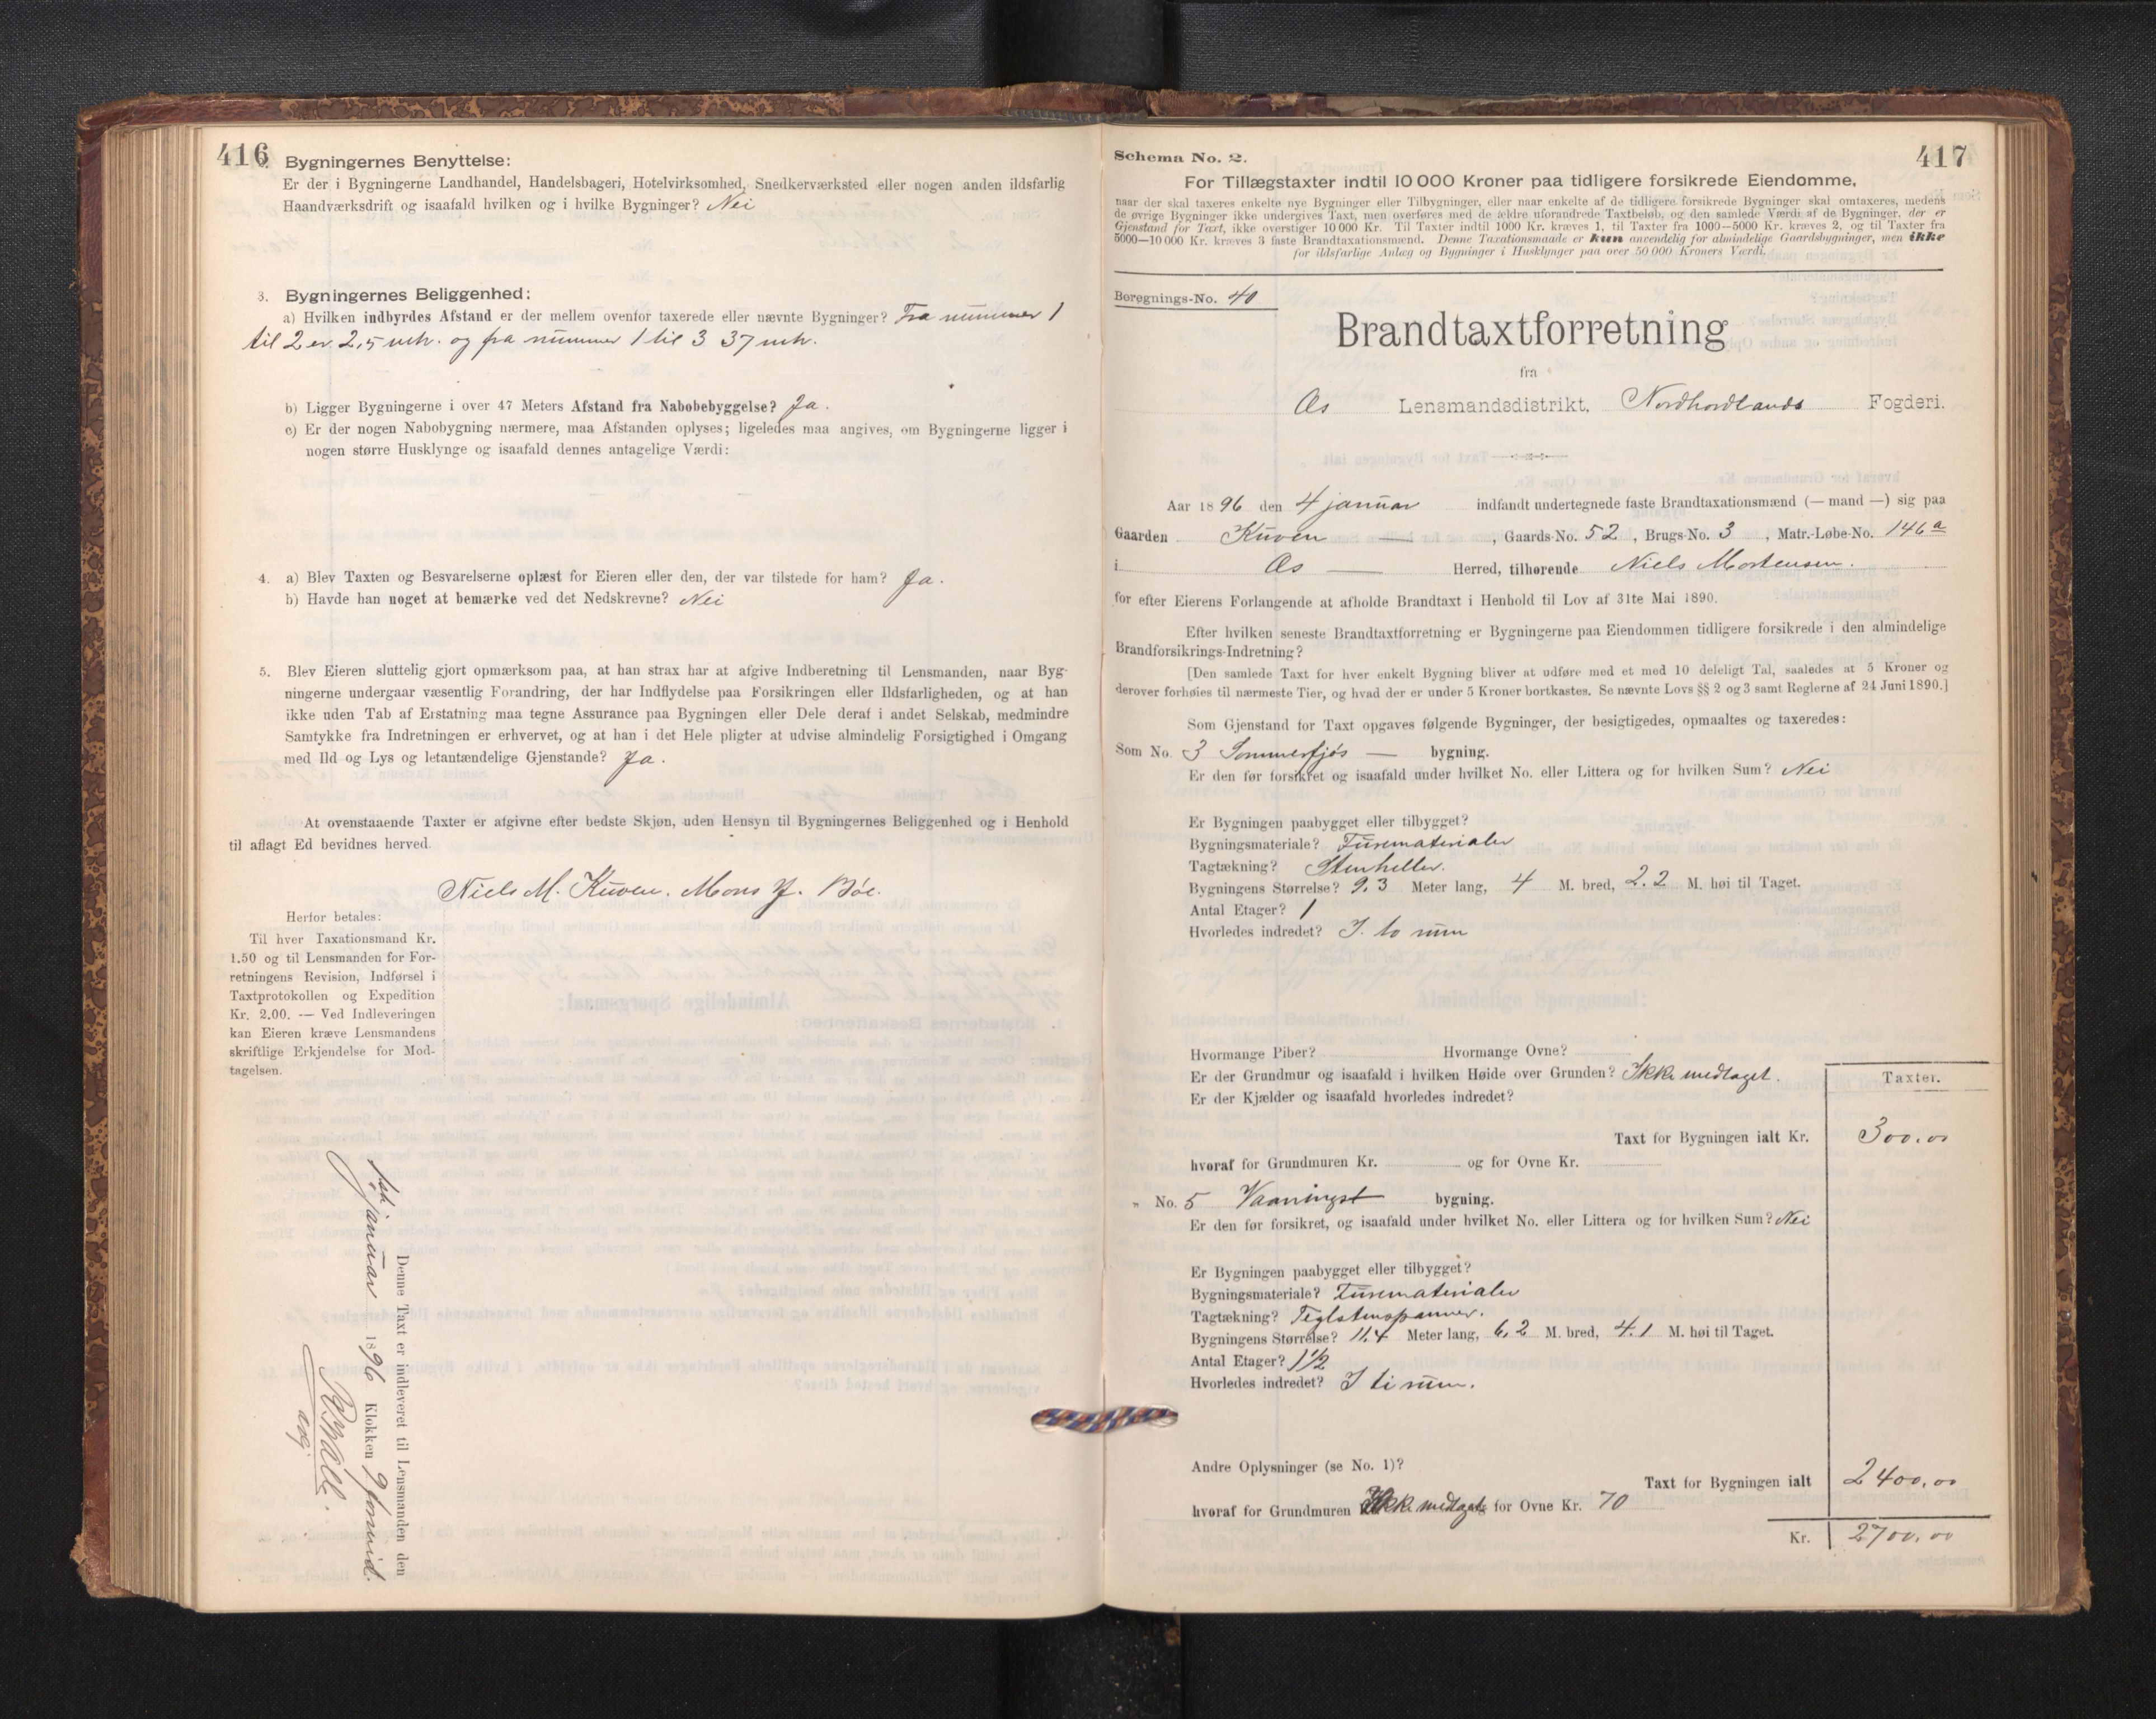 416
2. Bygningernes Benyttelse:
Er der i Bygningerne Landhandel, Handelsbageri, Hotelvirksomhed, Snedkerværksted eller nogen anden ildsfarlig
Haandværksdrift og isaafald hvilken og i hvilke Bygninger? Nei
3. Bygningernes Beliggenhed:
a) Hvilken indbyrdes Afstand er der mellem ovenfor taxerede eller nævnte Bygninger? Fra nummer 1
til 2 er 2,5 mtr. og fra nummer 1 til 3 37 mtr.
b) Ligger Bygningerne i over 47 Meters Afstand fra Nabobebyggelse? Ja.
c) Er der nogen Nabobygning nærmere, maa Afstanden oplyses; ligeledes maa angives, om Bygningerne ligger i
nogen større Husklynge og isaafald dennes antagelige Værdi:
4. a) Blev Taxten og Besvarelserne oplæst for Eieren eller den, der var tilstede for ham? Ja.
b) Havde han noget at bemærke ved det Nedskrevne? Nei
5. Blev Eieren sluttelig gjort opmærksom paa, at han strax har at afgive Indberetning til Lensmanden, naar Byg-
ningerne undergaar væsentlig Forandring, der har Indflydelse paa Forsikringen eller Ildsfarligheden, og at han
ikke uden Tab af Erstatning maa tegne Assurance paa Bygningen eller Dele deraf i andet Selskab, medmindre
Samtykke fra Indretningen er erhvervet, og at han i det Hele pligter at udvise almindelig Forsigtighed i Omgang
med Ild og Lys og letantændelige Gjenstande? Ja.
At ovenstaaende Taxter er afgivne efter bedste Skjøn, uden Hensyn til Bygningernes Beliggenhed og i Henhold
til aflagt Ed bevidnes herved.
Niels M. Kuven. Mons J. Bøe.
Herfor betales:
Til hver Taxationsmand Kr.
1.50 og til Lensmanden for For-
retningens Revision, Indførsel i
Taxtprotokollen og Expedition
Kr. 2.00. — Ved Indleveringen
kan Eieren kræve Lensmandens
skriftlige Erkjendelse for Mod-
tagelsen.
Denne Taxt er indleveret til Lensmanden den
Januar 1896 Klokken 9 formid.
417
Schema No. 2.
For Tillægstaxter indtil 10 000 Kroner paa tidligere forsikrede Eiendomme,
naar der skal taxeres enkelte nye Bygninger eller Tilbygninger, eller naar enkelte af de tidligere forsikrede Bygninger skal omtaxeres, medens
de øvrige Bygninger ikke undergives Taxt, men overføres med de ældre uforandrede Taxtbeløb, og den samlede Værdi af de Bygninger, der er
Gjenstand for Taxt, ikke overstiger 10 000 Kr. Til Taxter indtil 1000 Kr. kræves 1, til Taxter fra 1000—5000 Kr. kræves 2, og til Taxter fra
5000—10 000 Kr. kræves 3 faste Brandtaxationsmænd. Denne Taxationsmaade er kun anvendelig for almindelige Gaardsbygninger, men ikke
for ildsfarlige Anlæg og Bygninger i Husklynger paa over 50 000 Kroners Værdi.
Beregnings-No. 40
Brandtaxtforretning
fra
Os Lensmandsdistrikt, Nordhordlands Fogderi.
Aar 1896 den 4 januar indfandt undertegnede faste Brandtaxationsmænd (— mand —) sig paa
Gaarden Kuven — , Gaards-No. 52 , Brugs-No. 3 , Matr.-Løbe-No. 146 a
i Os — Herred, tilhørende Niels Mortensen.
for efter Eierens Forlangende at afholde Brandtaxt i Henhold til Lov af 31te Mai 1890.
Efter hvilken seneste Brandtaxtforretning er Bygningerne paa Eiendommen tidligere forsikrede i den almindelige
Brandforsikrings-Indretning?
[Den samlede Taxt for hver enkelt Bygning bliver at udføre med et med 10 deleligt Tal, saaledes at 5 Kroner og
derover forhøies til nærmeste Tier, og hvad der er under 5 Kroner bortkastes. Se nævnte Lovs §§ 2 og 3 samt Reglerne af 24 Juni 1890.]
Som Gjenstand for Taxt opgaves følgende Bygninger, der besigtigedes, opmaaltes og taxeredes:
Som No. 3 Sommerfjøs — bygning.
Er den før forsikret og isaafald under hvilket No. eller Littera og for hvilken Sum? Nei
Er Bygningen paabygget eller tilbygget?
Bygningsmateriale? Furematerialer
Tagtækning? Stenheller.
Bygningens Størrelse? 9.3 Meter lang, 4 M. bred, 2.2 M. høi til Taget.
Antal Etager? 1
Hvorledes indredet? I to rum
Hvormange Piber? Hvormange Ovne?
Er der Grundmur og isaafald i hvilken Høide over Grunden? Ikke medtaget.
Er der Kjælder og isaafald hvorledes indredet?
Taxter.
Taxt for Bygningen ialt Kr. 300.00
hvoraf for Grundmuren Kr. og for Ovne Kr.
„ No. 5 Vaaningst bygning.
Er den før forsikret, og isaafald under hvilket No. eller Littera og for hvilken Sum? Nei
Er Bygningen paabygget eller tilbygget?
Bygningsmateriale? Furematerialer
Tagtækning? Teglstenspanner.
Bygningens Størrelse? 11.4 Meter lang, 6.2 M. bred, 4.1 M. høi til Taget.
Antal Etager? 1½
Hvorledes indredet? I ti rum.
Andre Oplysninger (se No. 1)?
Taxt for Bygningen ialt 2400.00
hvoraf for Grundmuren Ikke medtaget for Ovne Kr. 70
Kr. 2700.00